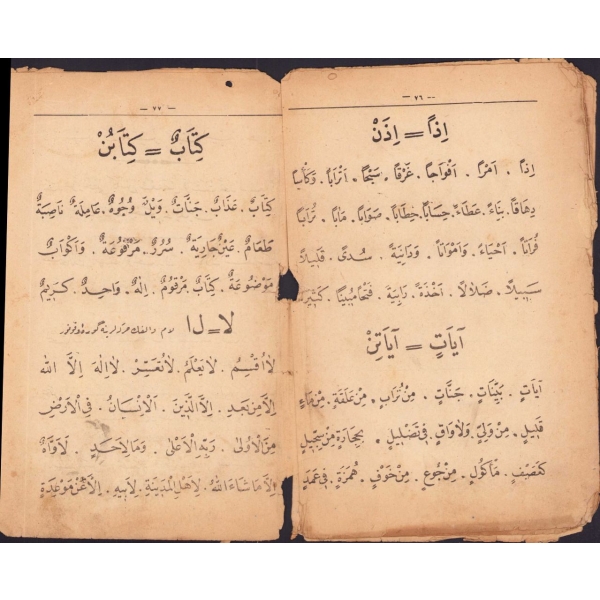 — ٧٦ —
اِذاً = اِذَنْ
اِذاً . اَمْراً . اَفْوَاجاً . غَرْقاً . سَبْحاً . اَتْرَاباً . وَكَأْساً
دِهَاقاً . بِنَاءً . عَطَاءً . حِسَاباً . خِطَاباً . صَوَاباً . مَاٰباً . تُرَاباً
فُرَاتاً . اَحْيَاءً . وَاَمْوَاتاً . وَدَانِيَةً . سُدًى . قَلِيلاً
سَبِيلاً . ضَلَالاً . اَخْذَةً . رَابِيَةً . فَتْحًا مُبِينًا . كَثِيرًا
آيَاتٍ = آيَاتِنْ
آيَاتٍ . بَيِّنَاتٍ . جَنَّاتٍ . مِنْ تُرَابٍ . مِنْ عَلَقَةٍ . مِنْ مَاءٍ
قَلِيلٍ . مِنْ وَلِيٍّ . وَلَا وَاقٍ . فِى تَضْلِيلٍ . بِحِجَارَةٍ مِنْ سِجِّيلٍ
كَعَصْفٍ . مَأْكُولٍ . مِنْ جُوعٍ . مِنْ خَوْفٍ . هُمَزَةٍ . فِى عَمَدٍ
— ٧٧ —
كِتَابٌ = كِتَابُنْ
كِتَابٌ . عَذَابٌ . جَنَّاتٌ . وَيْلٌ . وُجُوهٌ . عَامِلَةٌ . نَاصِبَةٌ
طَعَامٌ . عَيْنٌ جَارِيَةٌ . سُرُرٌ . مَرْفُوعَةٌ . وَاَكْوَابٌ
مَوْضُوعَةٌ . كِتَابٌ مَرْقُومٌ . اِلٰهٌ . وَاحِدٌ . كَرِيمٌ
لا = ل ا لام والفك حرفلرينه كوره اوقونور
لَا اُقْسِمُ . لَا يَعْلَمُ . لَا تُعَسِّرْ . لَا اِلٰهَ اِلَّا اللهُ
اِلَّا مِنْ بَعْدِ . اِلَّا الَّذِينَ . اَلْاِنْسَانُ . فِى الْاَرْضِ
مِنَ الْاُولٰى . رَبِّهِ الْاَعْلٰى . وَمَا لِاَحَدٍ . لَاَوَّاهٌ
اِلَّا مَا شَاءَ اللهُ . لِاَهْلِ الْمَدِينَةِ . لِاَبِيهِ . اِلَّا عَنْ مَوْعِدَةٍ